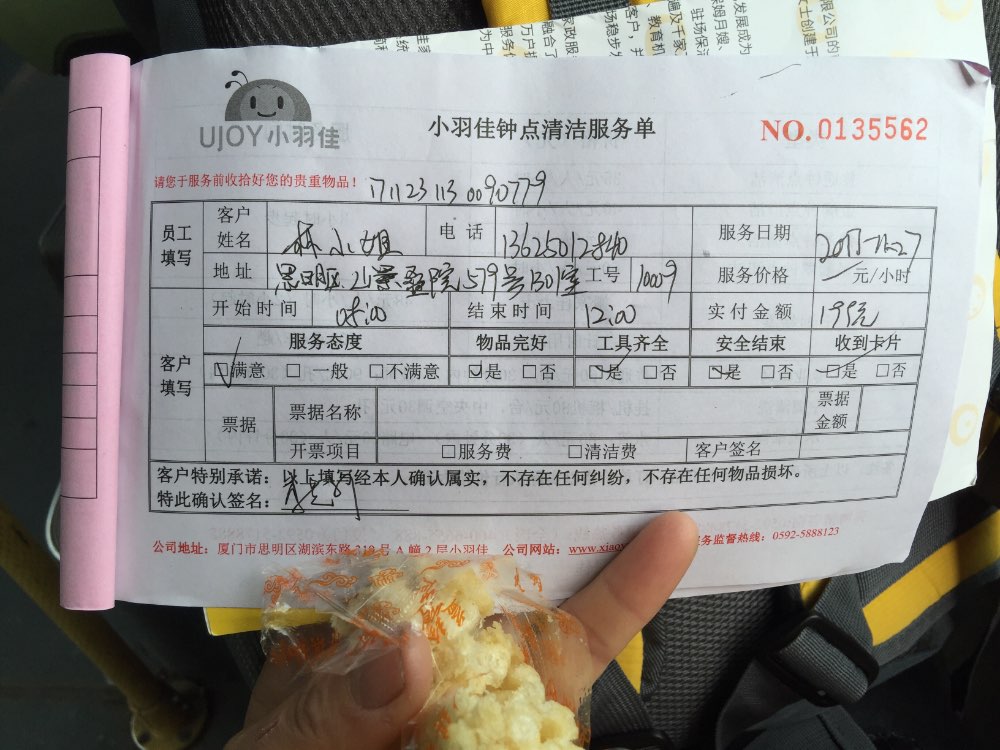 UJOY小羽佳
小羽佳钟点清洁服务单
NO. 0135562
请您于服务前收拾好您的贵重物品！
171123113 0090779
员工填写 客户姓名 林小姐 电话 13625012840 服务日期
地址 579号1301室 工号 10009 服务价格 元/小时
客户填写 开始时间 08:00 结束时间 12:00 实付金额 195元
服务态度 物品完好 工具齐全 安全结束 收到卡片
☑满意 □一般 □不满意 ☑是 □否 ☑是 □否 ☑是 □否 ☑是 □否
票据 票据名称 票据金额
开票项目 □服务费 □清洁费 客户签名
客户特别承诺：以上填写经本人确认属实，不存在任何纠纷，不存在任何物品损坏。
特此确认签名：
公司地址：厦门市思明区湖滨东路319号A幢2层小羽佳 公司网站：www.xiao 务监督热线：0592-5888123